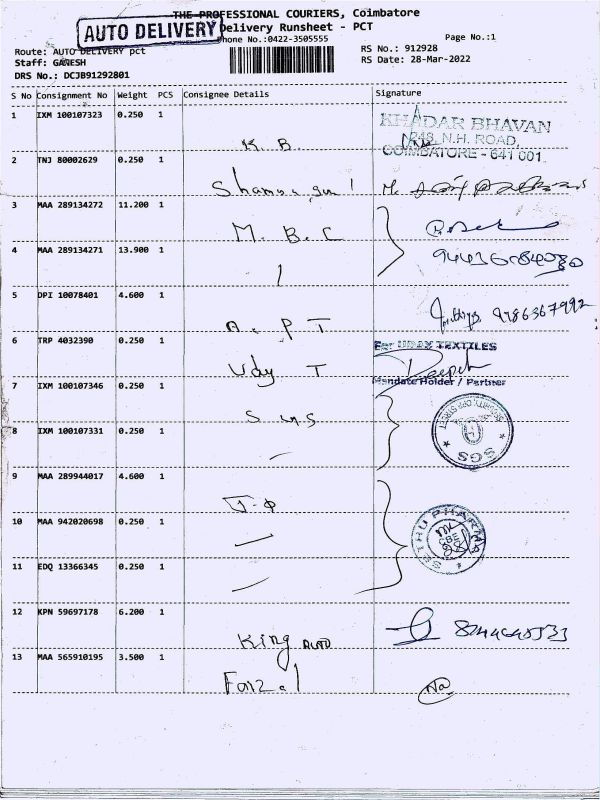 THE PROFESSIONAL COURIERS, Coimbatore
AUTO DELIVERY
Delivery Runsheet - PCT
Phone No.:0422-3505555
Page No.:1
Route: AUTO DELIVERY pct
RS No.: 912928
Staff: GANESH
RS Date: 28-Mar-2022
DRS No.: DCJB91292801
S No Consignment No Weight PCS Consignee Details Signature
1 IXM 100107323 0.250 1
K. B.
KHADAR BHAVAN
248, N.H. ROAD,
COIMBATORE - 641 001.
2 TNJ 80002629 0.250 1
3 MAA 289134272 11.200 1
M. B. C
4 MAA 289134271 13.900 1
5 DPI 10078401 4.600 1
9786367992
A. P T
6 TRP 4032390 0.250 1
For UDAY TEXTILES
Udy T
Deepak
Mandate Holder / Partner
7 IXM 100107346 0.250 1
8 IXM 100107331 0.250 1
SGS
SECURITY OPP STREET
9 MAA 289944017 4.600 1
10 MAA 942020698 0.250 1
SETHU PHARMA
CBE
11 EDQ 13366345 0.250 1
12 KPN 59697178 6.200 1
King AUTO
13 MAA 565910195 3.500 1
Faizal